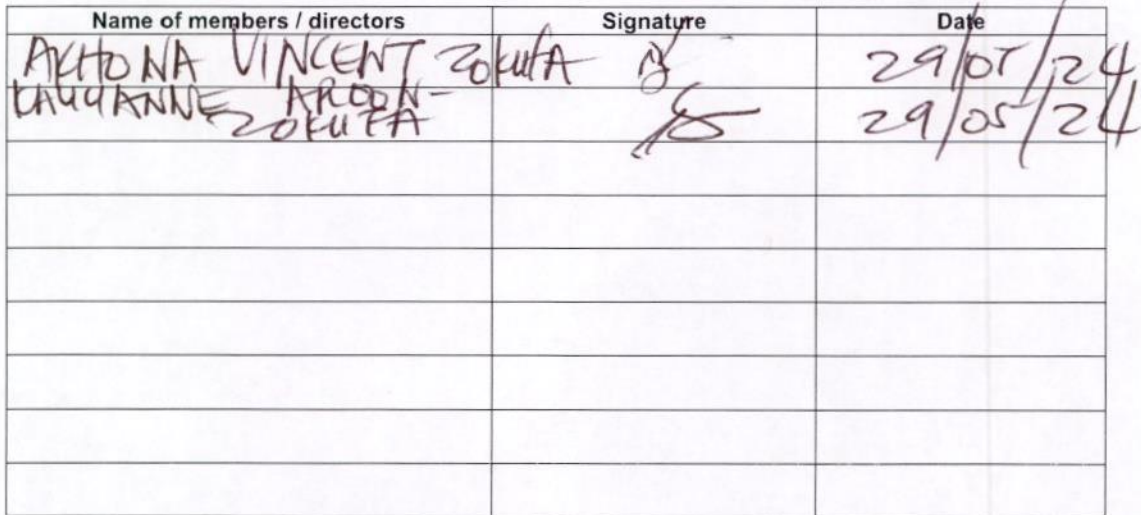 Name of members / directors Signature Date
AKHONA VINCENT ZOKUFA 29/05/24
ZOKUFA 29/05/24